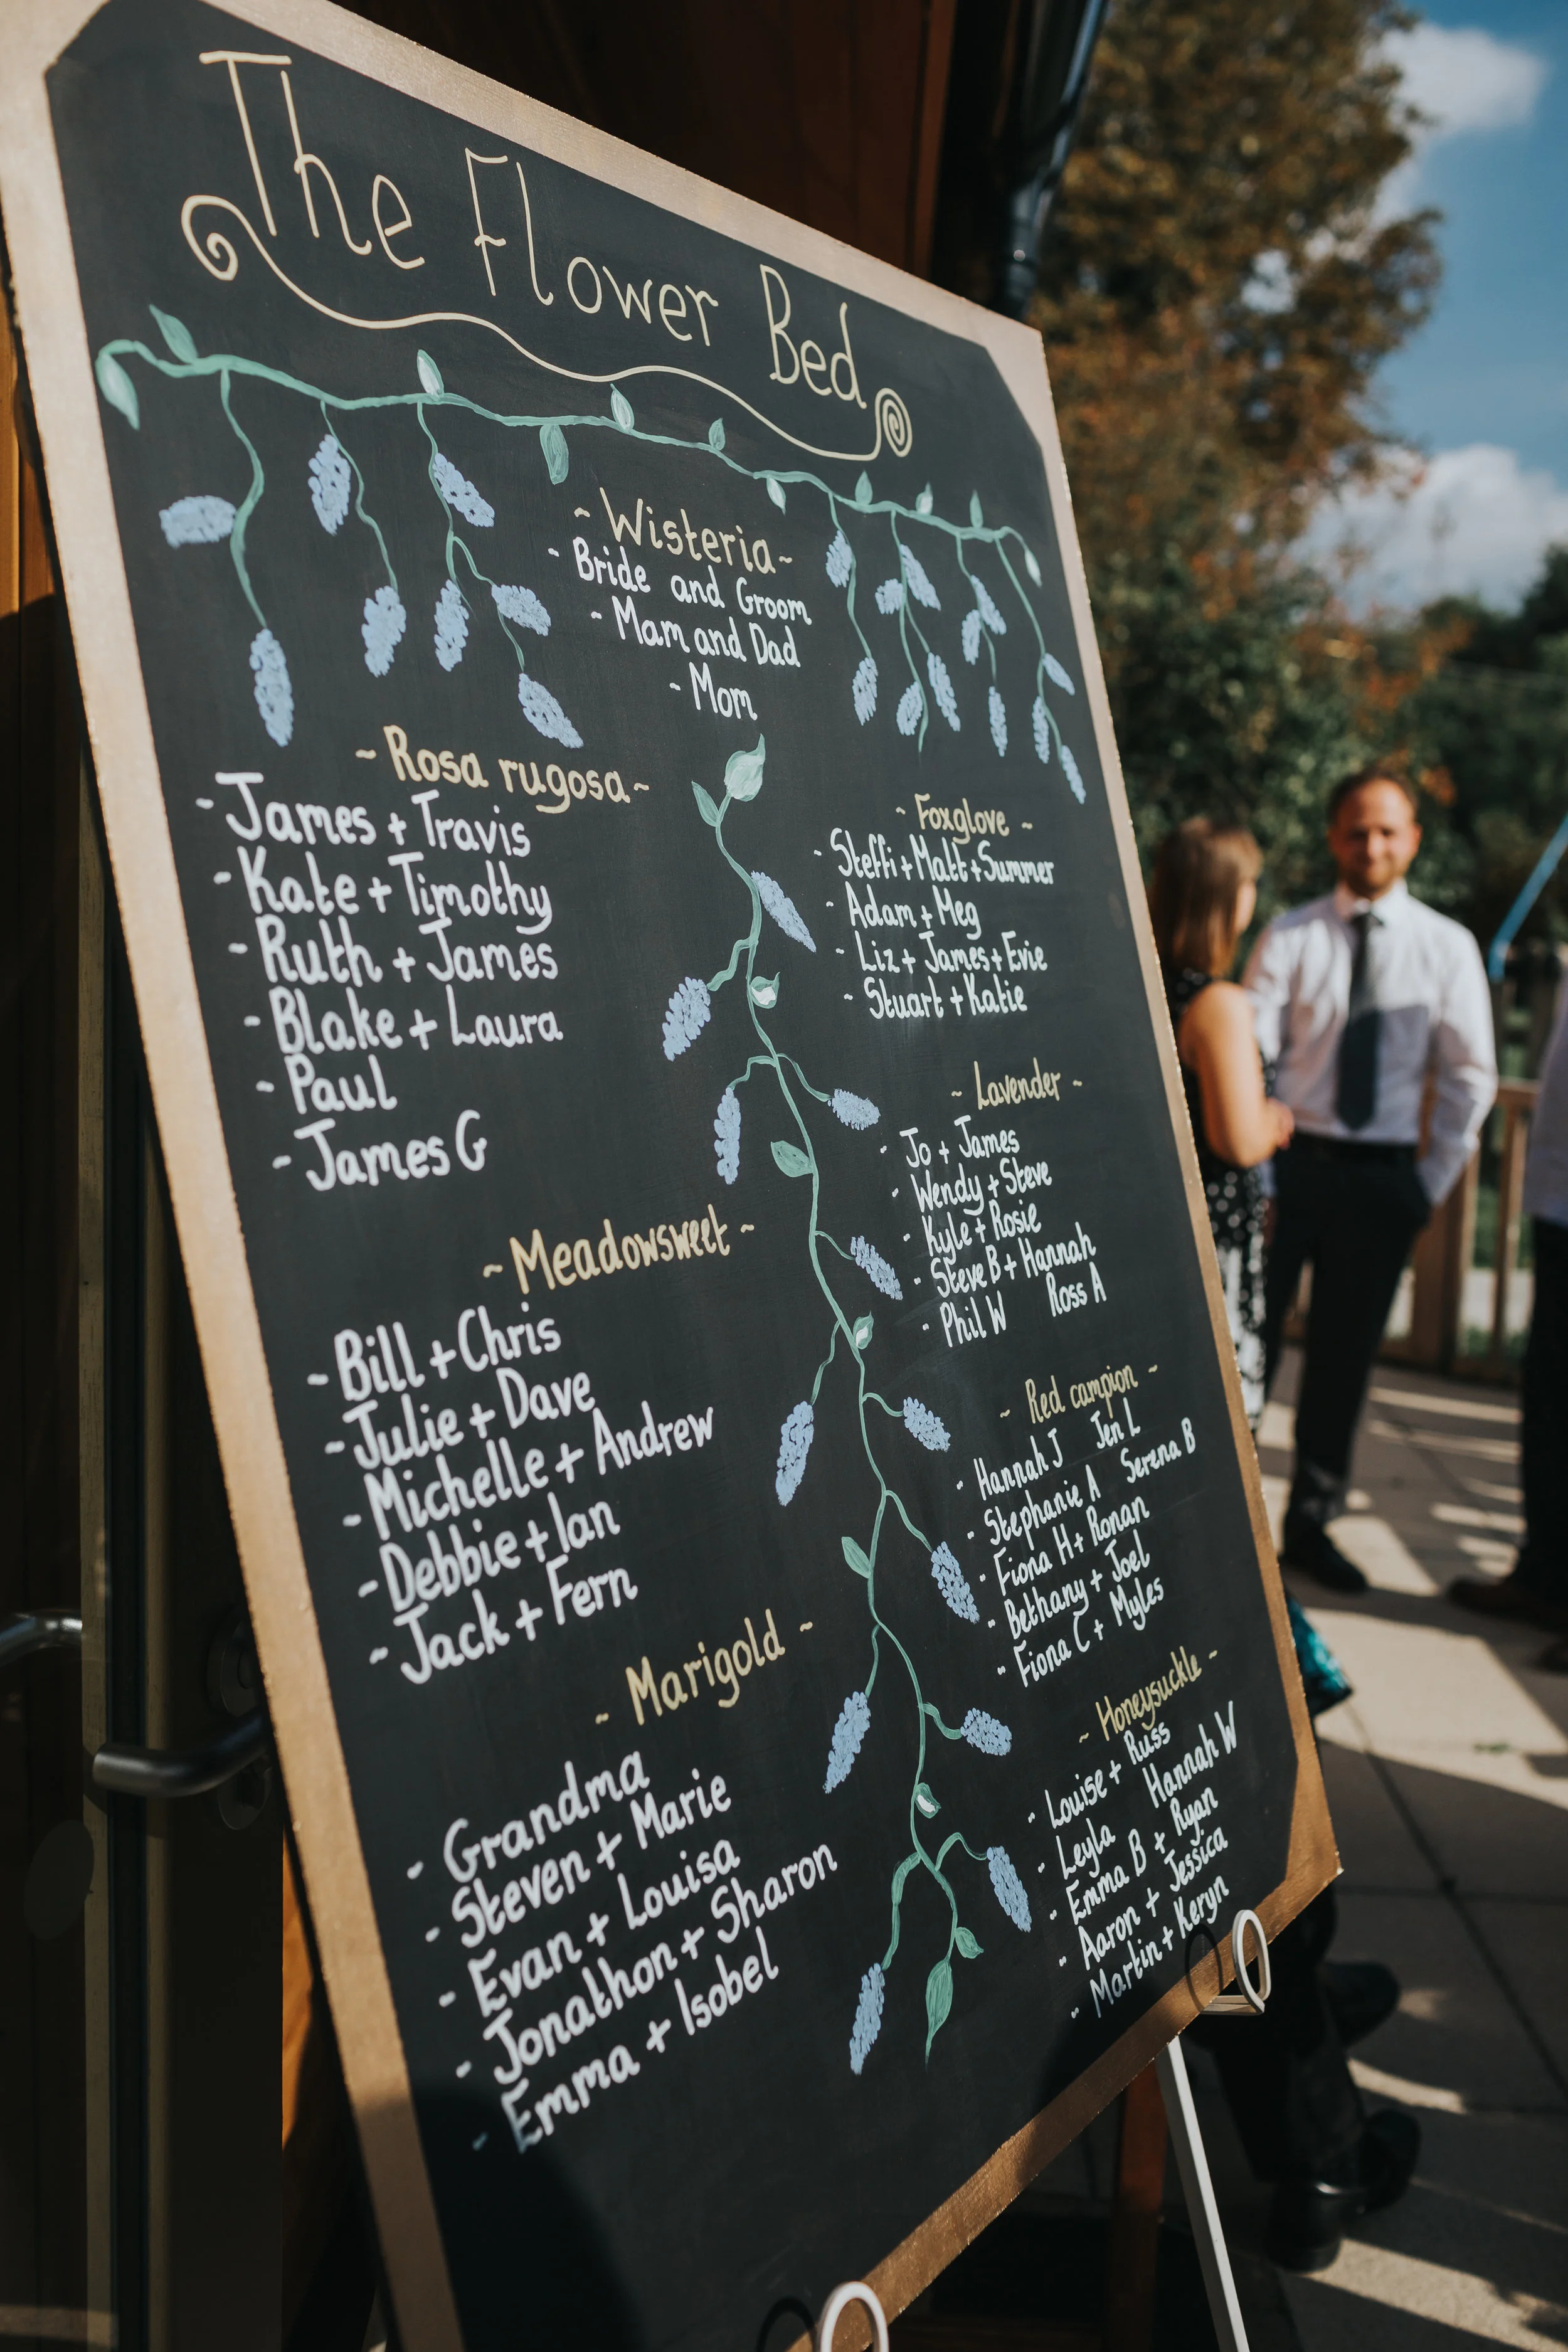 The Flower Bed
~ Wisteria ~
- Bride and Groom
- Mam and Dad
- Mom
~ Rosa rugosa ~
- James + Travis
- Kate + Timothy
- Ruth + James
- Blake + Laura
- Paul
- James G
~ Meadowsweet ~
- Bill + Chris
- Julie + Dave
- Michelle + Andrew
- Debbie + Ian
- Jack + Fern
~ Marigold ~
- Grandma
- Steven + Marie
- Evan + Louisa
- Jonathon + Sharon
- Emma + Isobel
~ Foxglove ~
- Steffi + Matt + Summer
- Adam + Meg
- Liz + James + Evie
- Stuart + Katie
~ Lavender ~
- Jo + James
- Wendy + Steve
- Kyle + Rosie
- Steve B + Hannah
- Phil W Ross A
~ Red campion ~
- Hannah J Jen L
- Stephanie A Serena B
- Fiona H + Ronan
- Bethany + Joel
- Fiona C + Myles
~ Honeysuckle ~
- Louise + Russ
- Leyla Hannah W
- Emma B + Ryan
- Aaron + Jessica
- Martin + Keryn